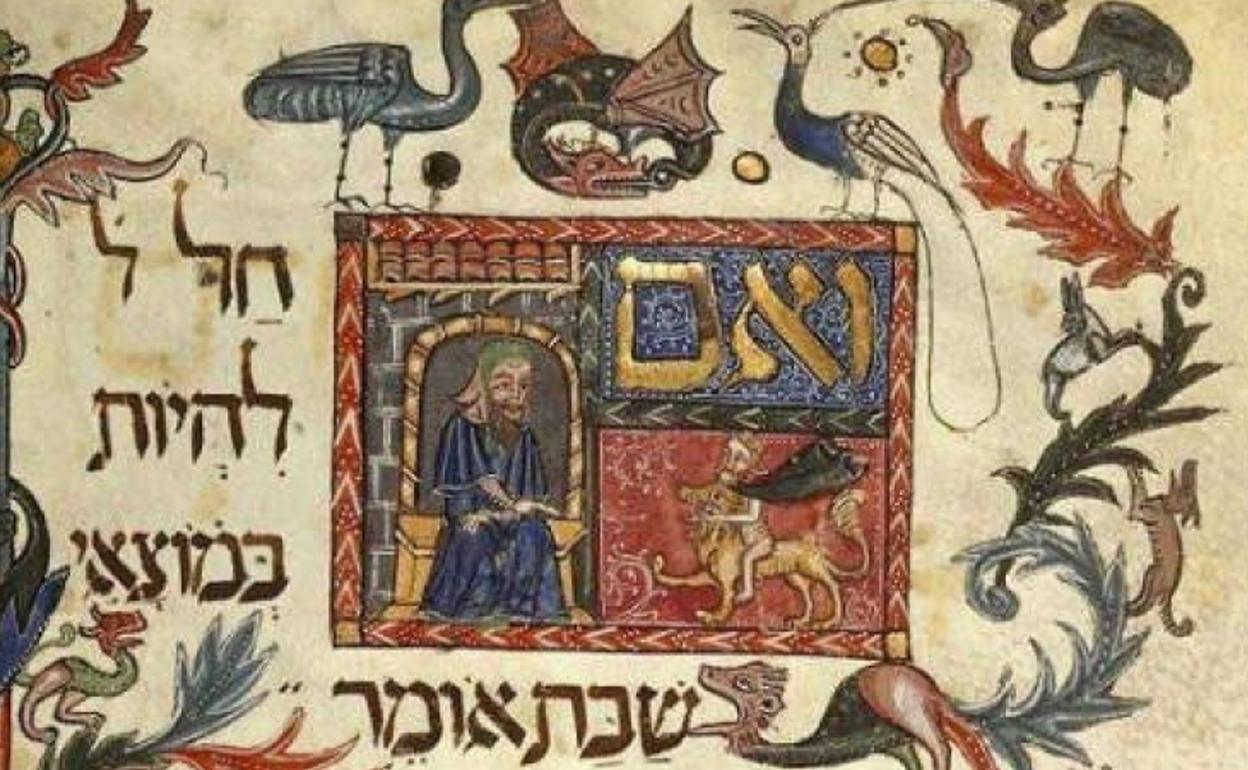 וְאִם
חַל ל
לִהְיוֹת
בְּמוֹצָאֵי
שַׁבָּת אוֹמֵר ״